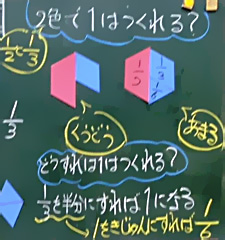 2色で1はつくれる?
1/2と1/3
1/2
1/3
1/3
くうどう
あまる
どうすれば1はつくれる?
1/3を半分にすれば1になる
1をきじゅんにすれば1/6